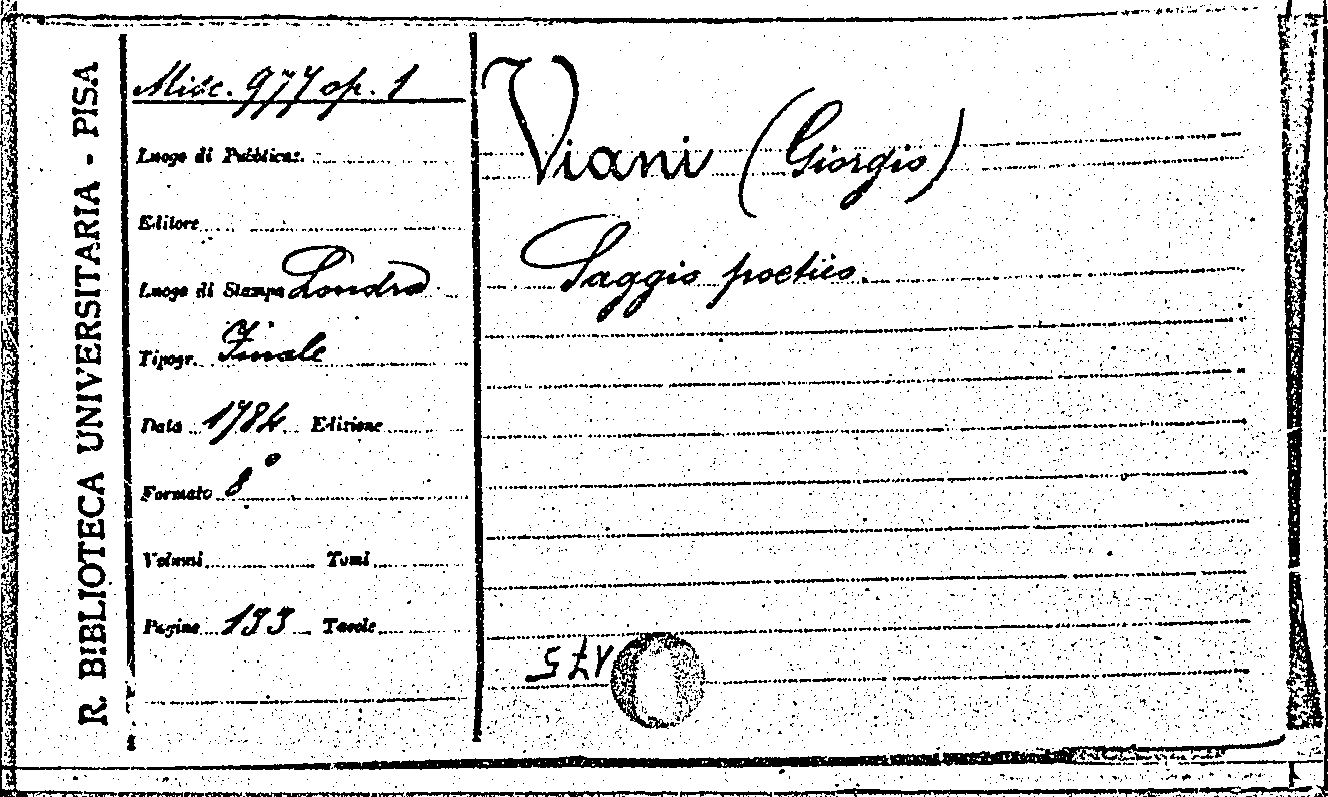 R. BIBLIOTECA UNIVERSITARIA - PISA
Misc. 977 op. 1
Luogo di Pubblicaz.
Editore
Luogo di Stampa Londra
Tipogr. Finale
Data 1784 Edizione
Formato 8°
Volumi Tomi
Pagine 133 Tavole
Viani (Giorgio)
Saggio poetico.